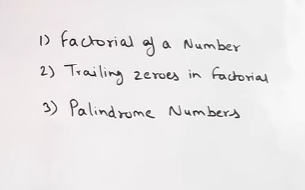 1) Factorial of a Number
2) Trailing zeroes in factorial
3) Palindrome Numbers